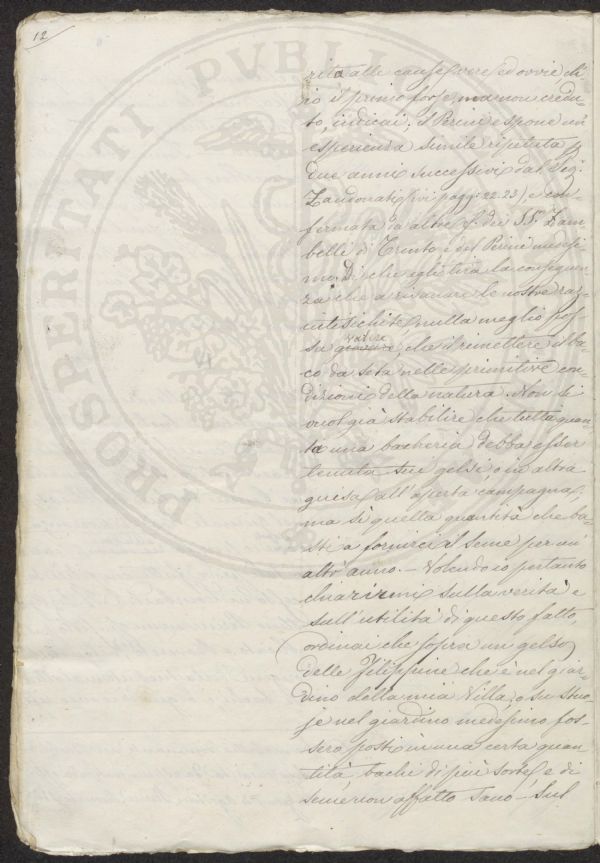 12
PROSPERITATI PVBLIC
rità alle cause vere ed ovvie ch'
io il primo forse, ma non credu-
to, indicai. Il Perini espone un'
esperienza simile ripetuta p
due anni successivi dal Sig.
Zandonati (ivi pagg. 22.23), e con-
fermata da altre dei SS.ri Zam-
belli di Trento e del Perini medesi-
mo. Di che egli tira la conseguen
za che a risanare le nostre raz-
ze nulla meglio pos
sa valere
che il rimettere il ba-
co da seta nelle primitive con-
dizioni della natura. Non si
vuol già stabilire che tutta quan
ta una bacheria debba esser
tenuta sui gelsi o in altra
guisa all'aperta campagna,
ma sì quella quantità che ba-
sti a fornirci il seme per un'
altr'anno. – Volendo io pertanto
chiarirmi sulla verità e
sull'utilità di questo fatto,
ordinai che sopra un gelso
delle Filippine che è nel giar-
dino della mia Villa, o su stuo-
je nel giardino medesimo, fos-
sero posti in una certa quan-
tità bachi di più sorte, e di
seme non affatto sano – Sul